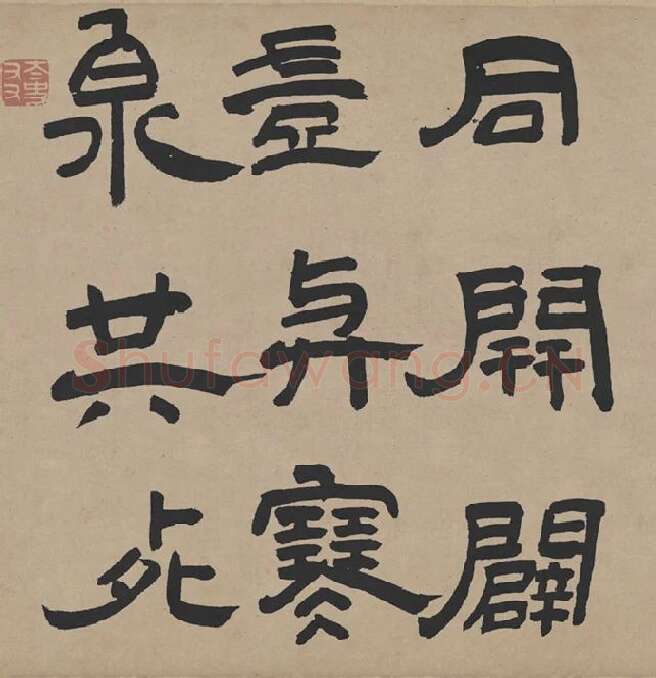 同開闢
與寒
泉共死
Shufawang.CN